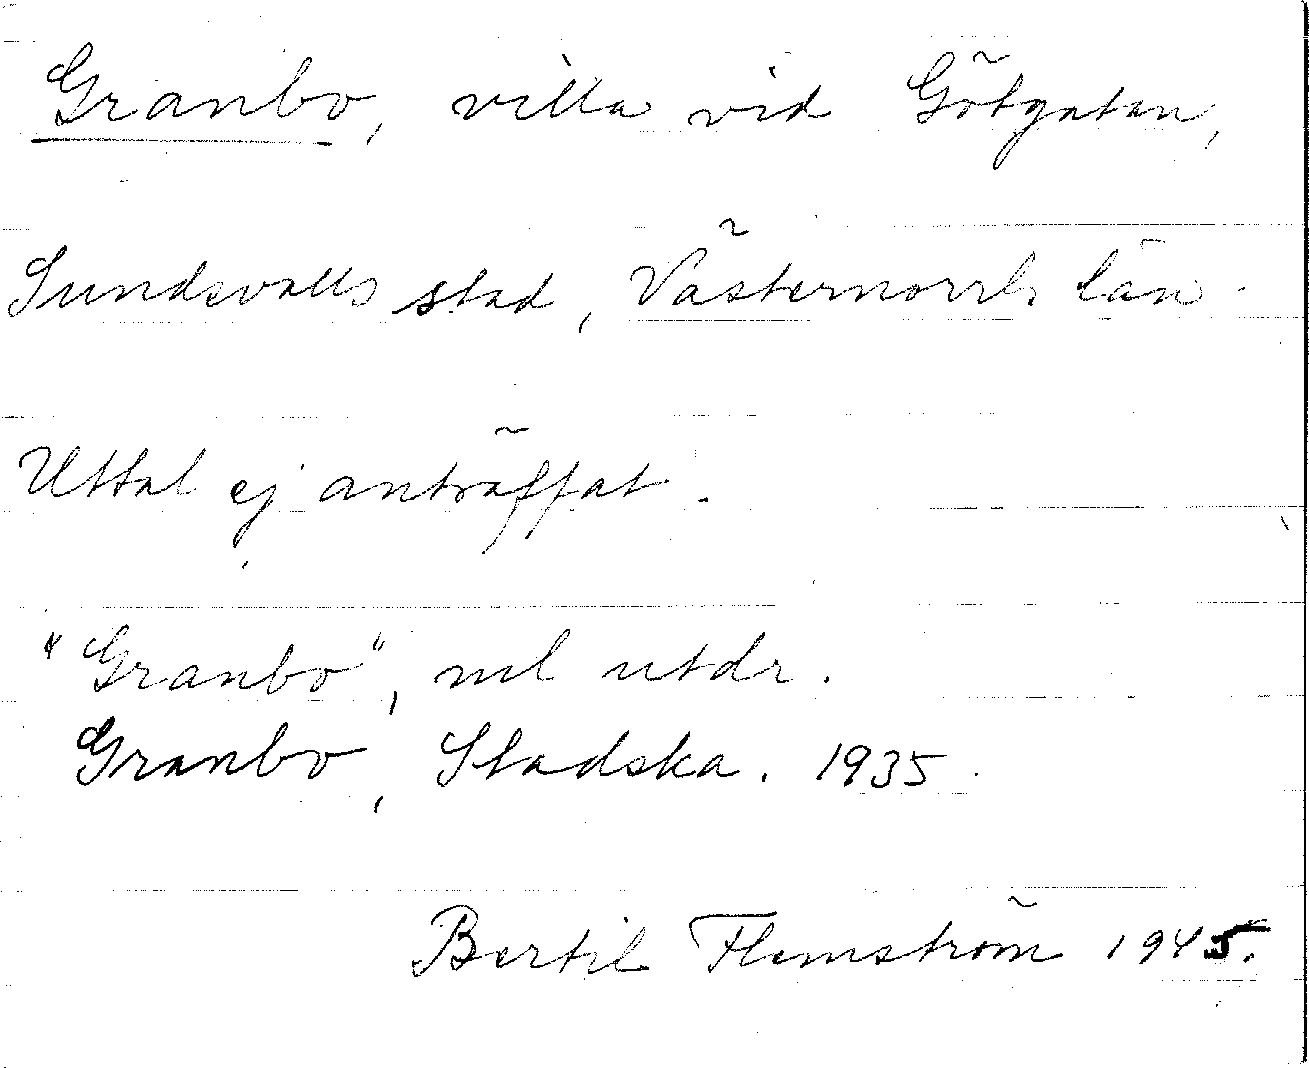 Granbo, villa vid Götgatan,
Sundsvalls stad, Västernorrls län.
Uttal ej anträffat.
"Granbo", enl utdr.
Granbo, Stadska. 1935.
Bertil Flemström 1945.